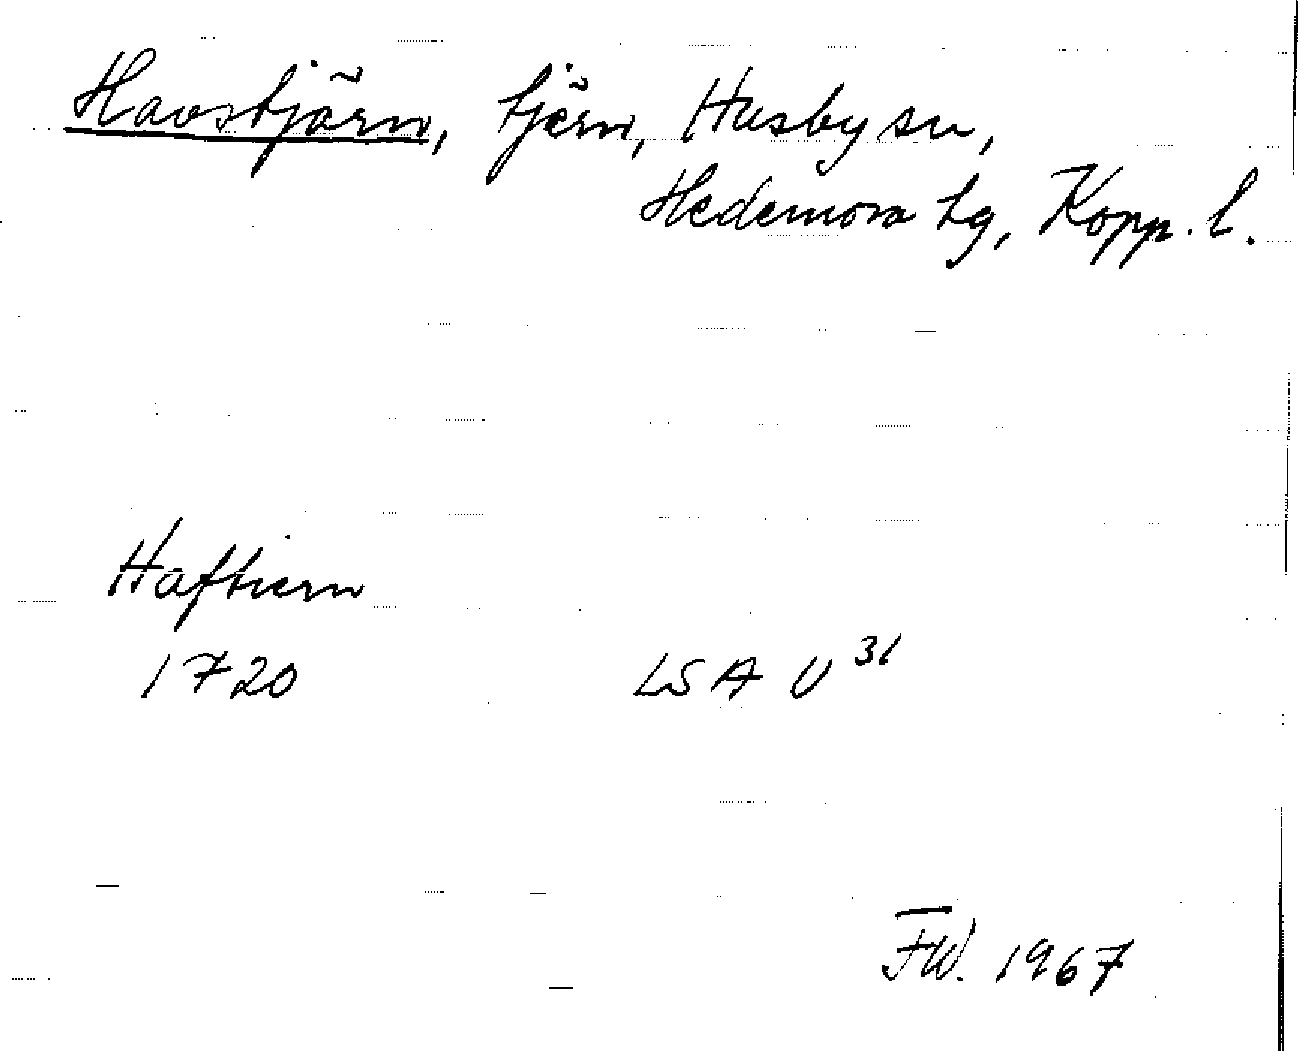 Havstjärn, tjärn, Husby sn,
Hedemora tg, Kopp. l.
Haftiern
1720 LSA U 31
FW. 1967